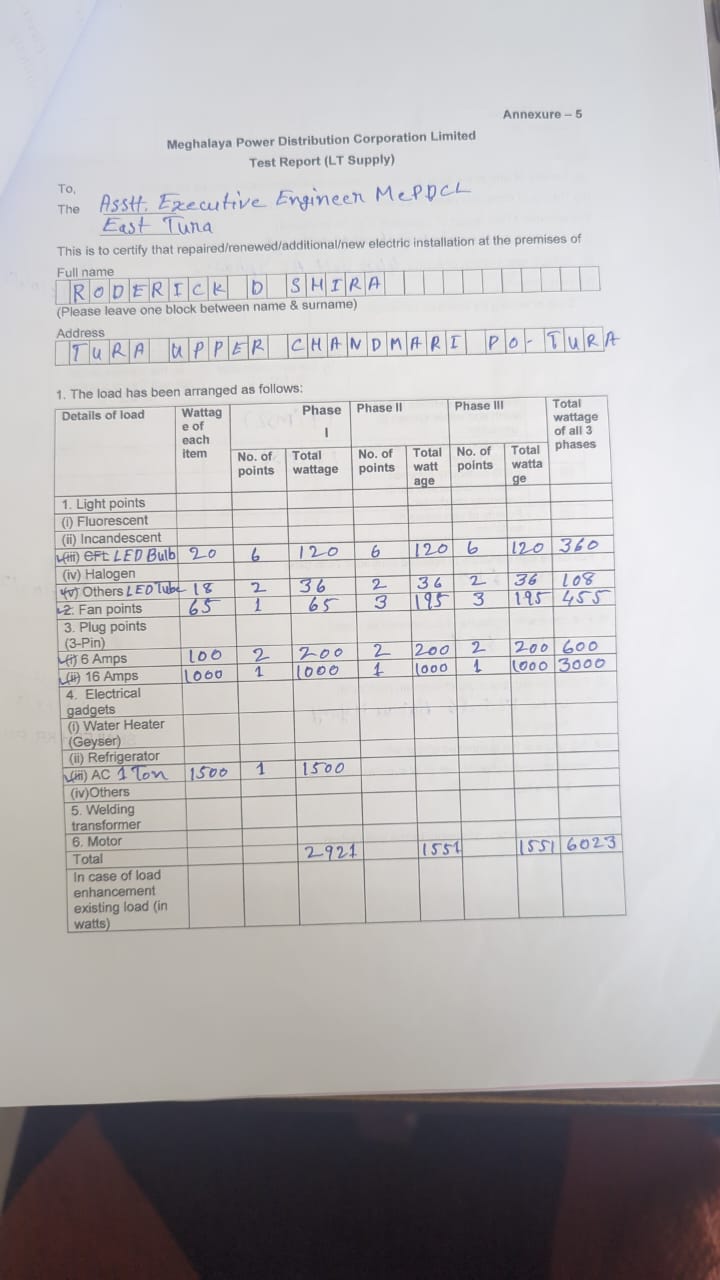 Annexure – 5
Meghalaya Power Distribution Corporation Limited
Test Report (LT Supply)
To,
The Asstt. Executive Engineer MePDCL
East Tura
This is to certify that repaired/renewed/additional/new electric installation at the premises of
Full name
RODERICK D SHIRA
(Please leave one block between name & surname)
Address
TURA UPPER CHANDMARI PO- TURA
1. The load has been arranged as follows:
Details of load Wattag e of each item Phase I Phase II Phase III Total wattage of all 3 phases
No. of points Total wattage No. of points Total watt age No. of points Total watta ge
1. Light points
(i) Fluorescent
(ii) Incandescent
(iii) CFL LED Bulb 20 6 120 6 120 6 120 360
(iv) Halogen
(v) Others LED Tube 18 2 36 2 36 2 36 108
2. Fan points 65 1 65 3 195 3 195 455
3. Plug points
(3-Pin)
(i) 6 Amps 100 2 200 2 200 2 200 600
(ii) 16 Amps 1000 1 1000 1 1000 1 1000 3000
4. Electrical
gadgets
(i) Water Heater
(Geyser)
(ii) Refrigerator
(iii) AC 1 Ton 1500 1 1500
(iv)Others
5. Welding
transformer
6. Motor
Total 2921 1551 1551 6023
In case of load
enhancement
existing load (in
watts)